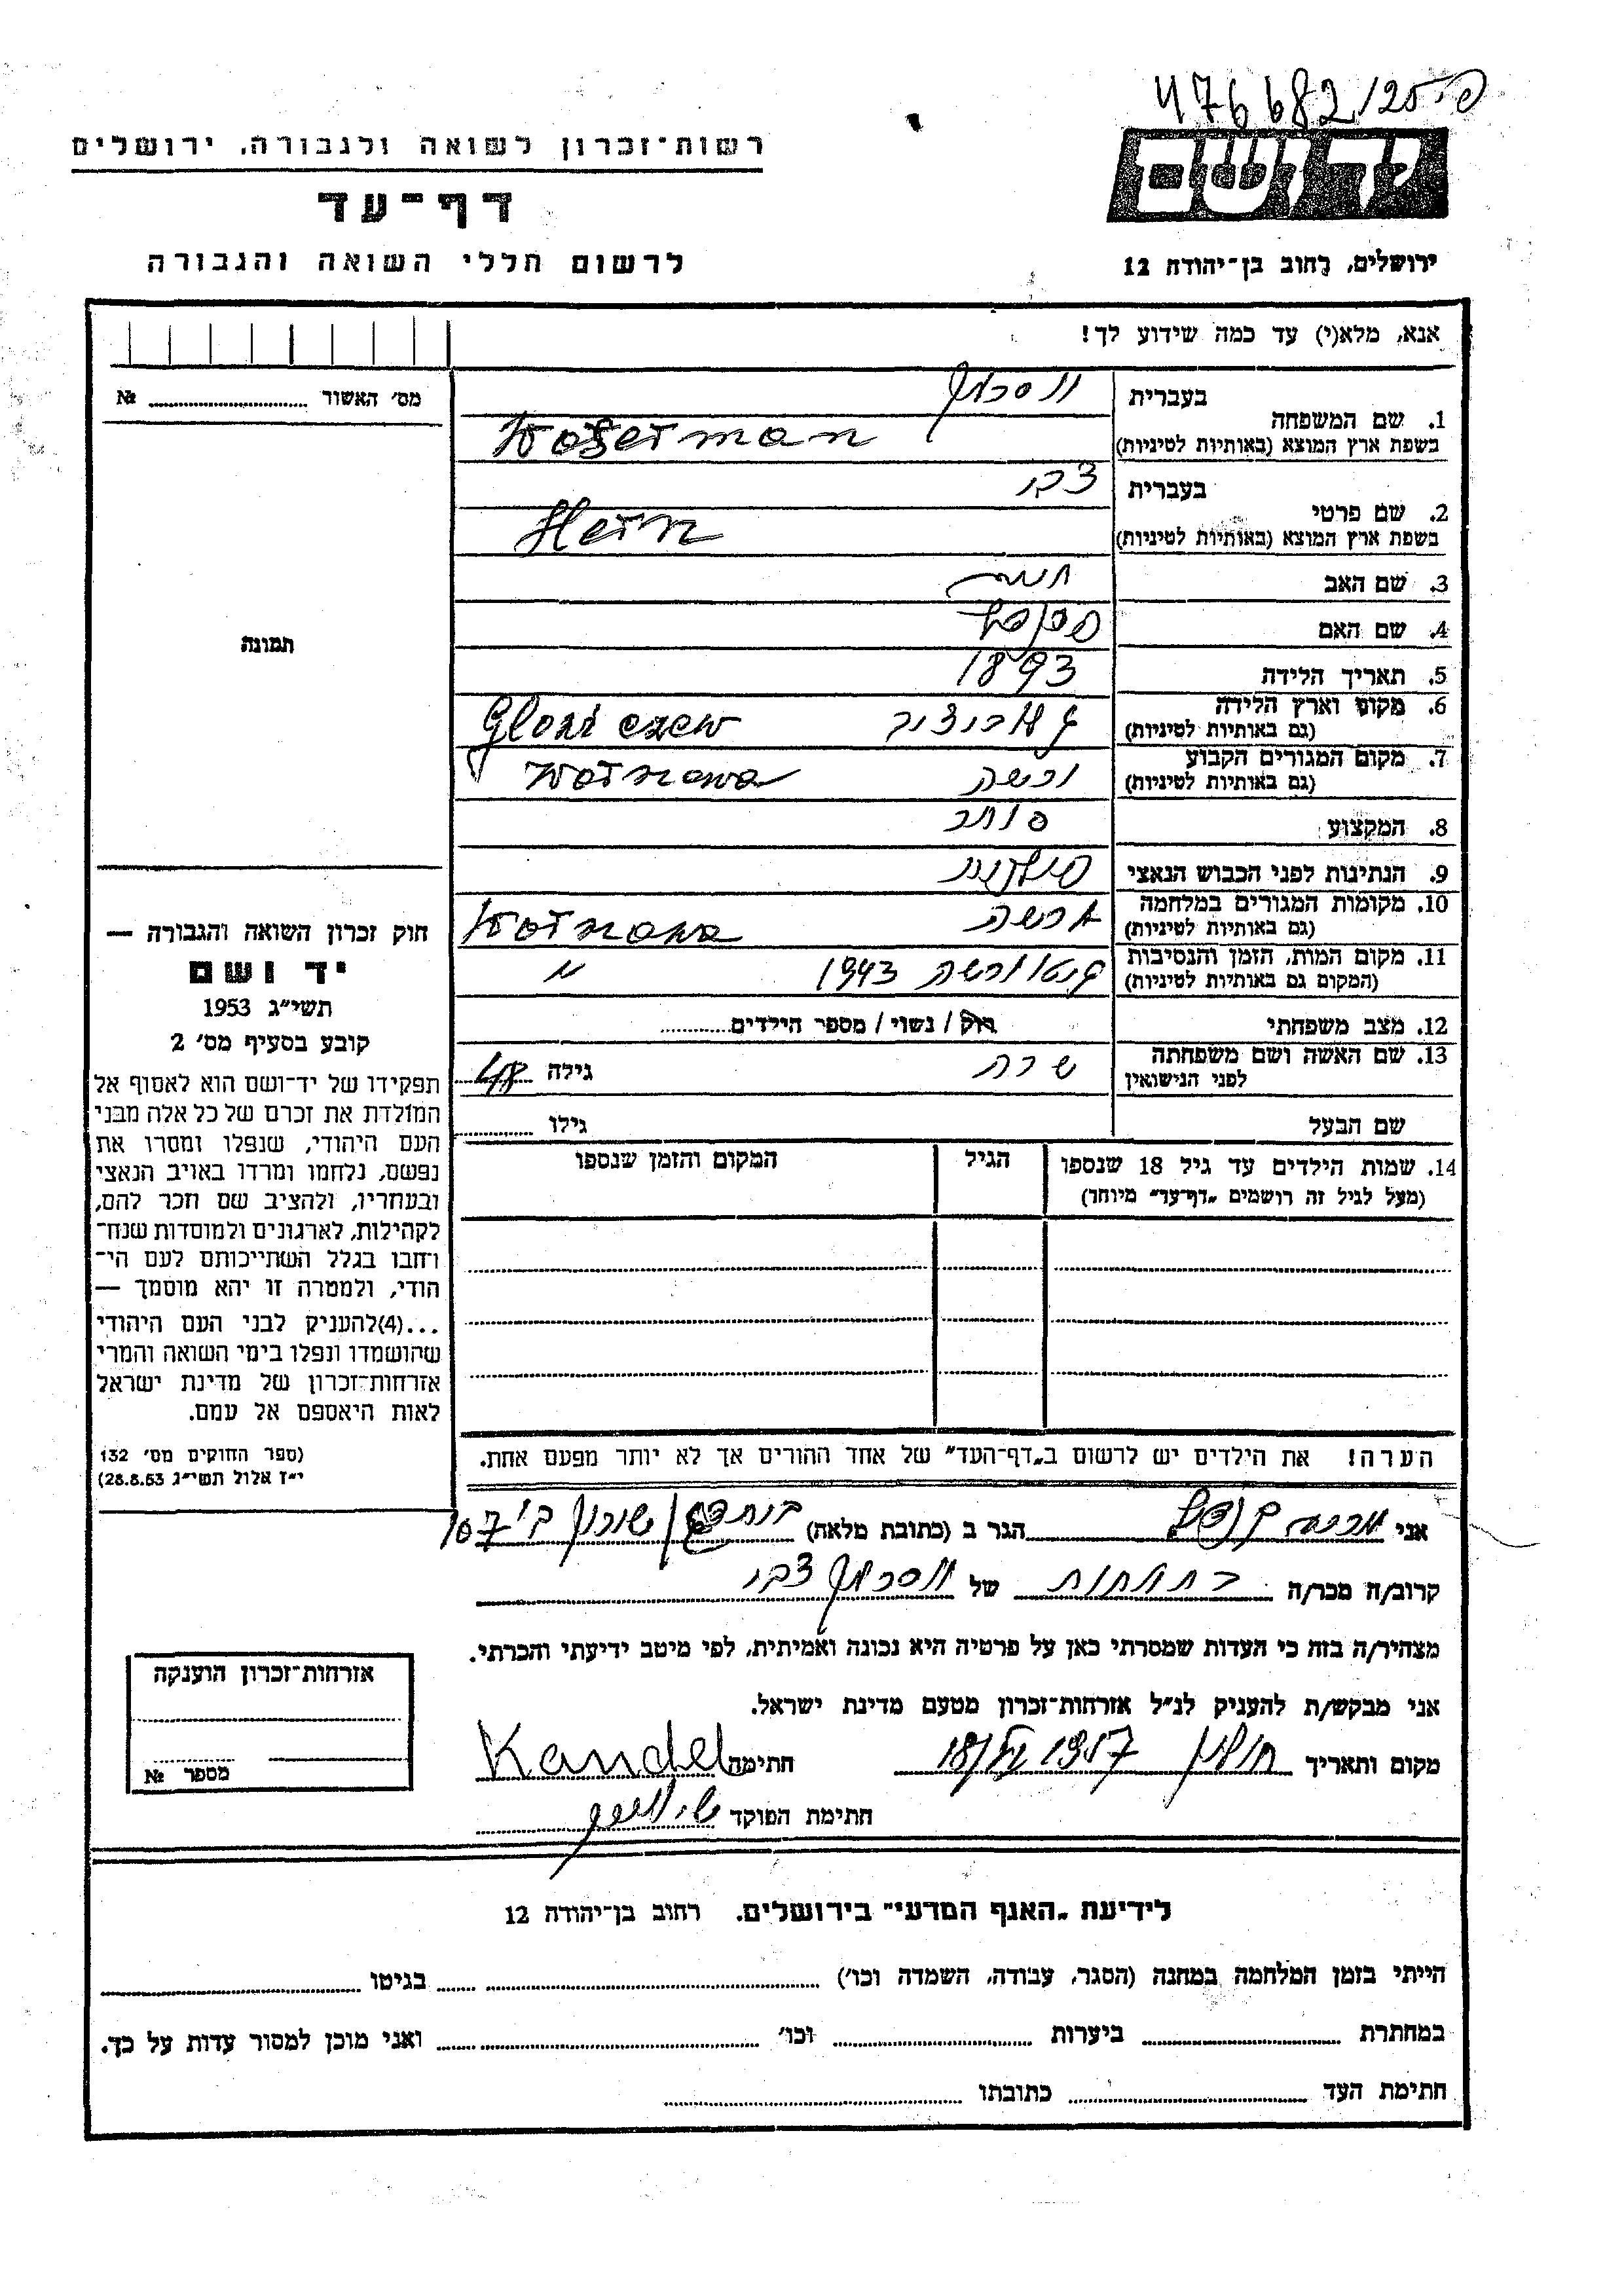 476682/25
רשות־זכרון לשואה ולגבורה, ירושלים
ידושם
דף־עד
לרשום חללי השואה והגבורה
ירושלים, רחוב בן־יהודה 12
אנא, מלא(י) עד כמה שידוע לך!
מס׳ האשור № 
תמונה
1. שם המשפחה
בעברית וסרמן
בשפת ארץ המוצא (באותיות לטיניות) Waserman
2. שם פרטי
בעברית צבי
בשפת ארץ המוצא (באותיות לטיניות) Hern
3. שם האב
4. שם האם
5. תאריך הלידה 1893
6. מקום וארץ הלידה
(גם באותיות לטיניות)
7. מקום המגורים הקבוע ורשה
(גם באותיות לטיניות) Warnawa
8. המקצוע סוחר
9. הנתינות לפני הכבוש הנאצי פולנית
10. מקומות המגורים במלחמה ורשה
(גם באותיות לטיניות)
11. מקום המות, הזמן והנסיבות גטו ורשה 1943
(המקום גם באותיות לטיניות)
12. מצב משפחתי רוק / נשוי / מספר הילדים
13. שם האשה ושם משפחתה שרה גילה 48
לפני הנישואין
שם הבעל גילו
14. שמות הילדים עד גיל 18 שנספו הגיל המקום והזמן שנספו
(מעל לגיל זה רושמים „דף־עד״ מיוחד)
הערה! את הילדים יש לרשום ב„דף־העד״ של אחד ההורים אך לא יותר מפעם אחת.
חוק זכרון השואה והגבורה —
יד ושם
תשי״ג 1953
קובע בסעיף מס׳ 2
תפקידו של יד־ושם הוא לאסוף אל
המולדת את זכרם של כל אלה מבני
העם היהודי, שנפלו ומסרו את
נפשם, נלחמו ומרדו באויב הנאצי
ובעוזריו, ולהציב שם וזכר להם,
לקהילות, לארגונים ולמוסדות שנח־
רחבו בגלל השתייכותם לעם הי־
הודי, ולמטרה זו יהא מוסמך —
...(4)להעניק לבני העם היהודי
שהושמדו ונפלו בימי השואה והמרי
אזרחות־זכרון של מדינת ישראל
לאות היאספם אל עמם.
(ספר החוקים מס׳ 132
י״ז אלול תשי״ג 28.8.53)
אני קנדל הגר ב (כתובת מלאה) שיכון ב׳ 107
קרוב/ה מכר/ה של וסרמן צבי
מצהיר/ה בזה כי העדות שמסרתי כאן על פרטיה היא נכונה ואמיתית, לפי מיטב ידיעתי והכרתי.
אני מבקש/ת להעניק לנ״ל אזרחות־זכרון מטעם מדינת ישראל.
מקום ותאריך חולון חתימה Kandel
חתימת הפוקד
אזרחות־זכרון הוענקה
מספר №
לידיעת „האגף המדעי״ בירושלים. רחוב בן־יהודה 12
הייתי בזמן המלחמה במחנה (הסגר, עבודה, השמדה וכו׳) בגיטו
במחתרת ביערות וכו׳ ואני מוכן למסור עדות על כך.
חתימת העד כתובתו